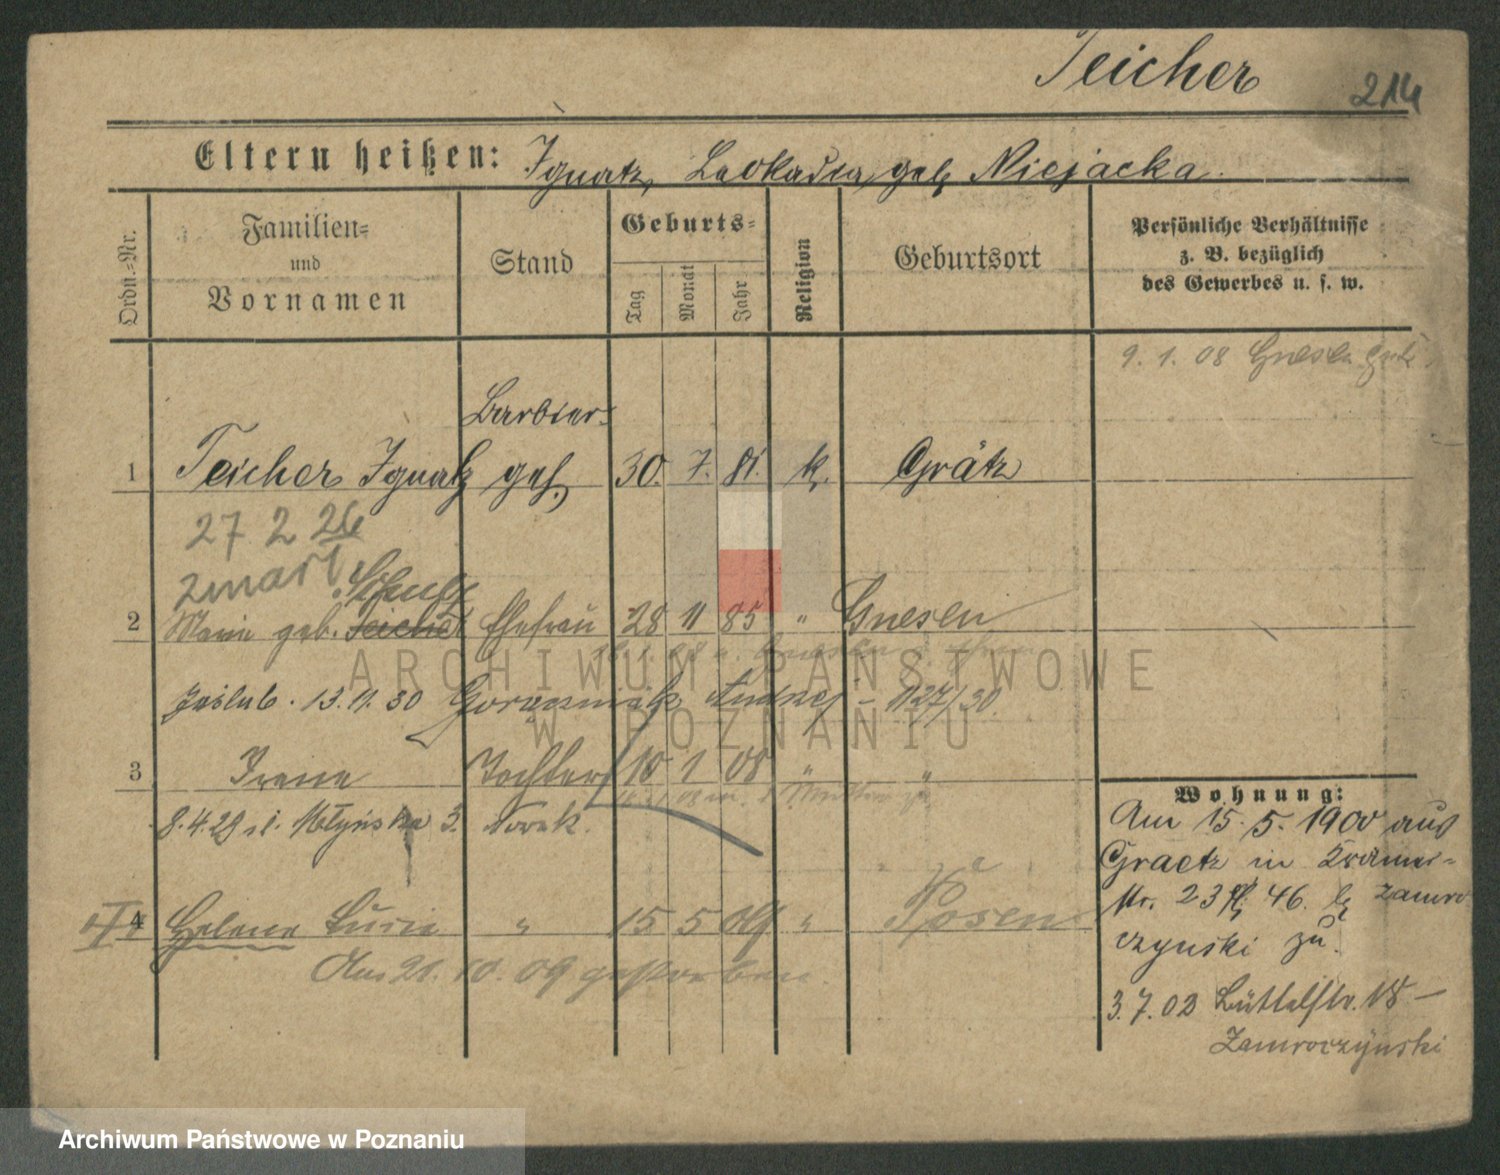 Teicher
214
Eltern heißen: Ignatz, Leokadia, geb. Niejacka.
Ordn.-Nr.
Familien-
und
Vornamen
Stand
Geburts-
Tag
Monat
Jahr
Religion
Geburtsort
Persönliche Verhältnisse
z. B. bezüglich
des Gewerbes u. s. w.
9. 1. 08 Gnesen
Barbier-
1 Teicher Ignatz geh. 30. 7. 81. k. Grätz
27 2 26
zmarł.
Schulz
2 Marie geb. Teicher Ehefrau 28 11 85 " Gnesen
zaślub. 13. 11. 30 Andrzej - 1127/30
3 Irene Tochter 10 1 08 " "
8. 4. 29 Młyńska 3.
4 Helene Lucie " 15 5 09 " Posen
Am 21. 10. 09 gestorben.
Wohnung:
Am 15. 5. 1900 aus
Graetz in Krämer-
str. 23 46. b. Zamro
czynski zu.
3. 7. 02 Büttelstr. 18 -
Zamroczyński
ARCHIWUM PAŃSTWOWE
W POZNANIU
Archiwum Państwowe w Poznaniu